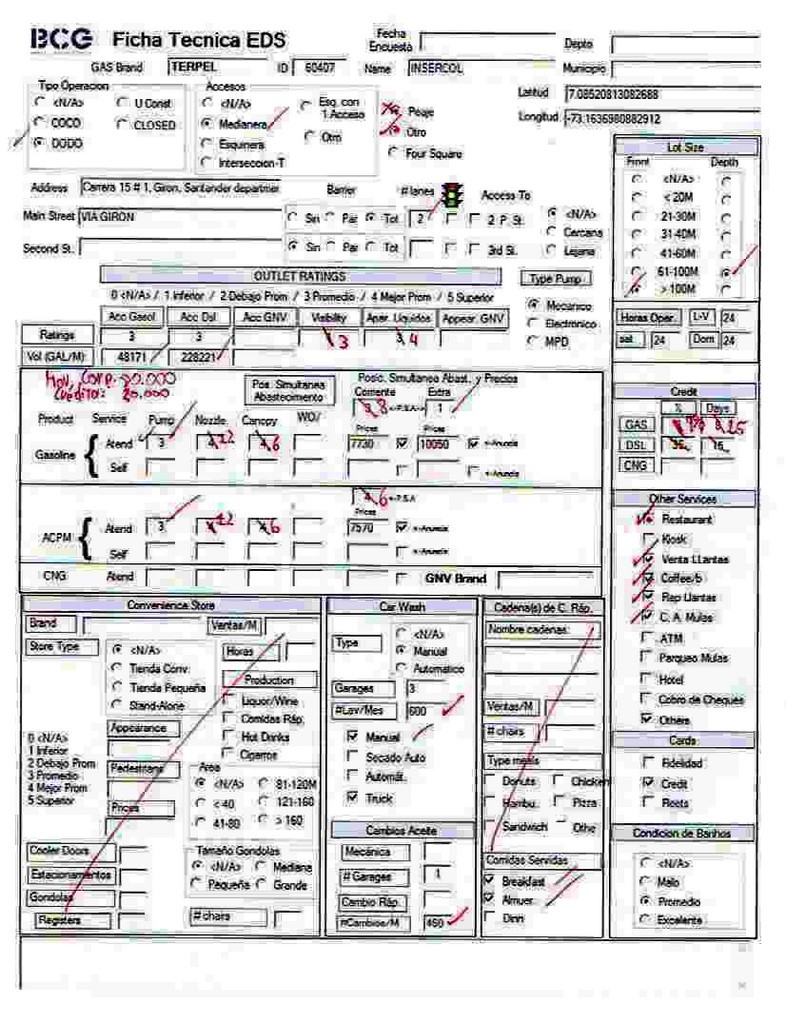 BCG Ficha Tecnica EDS
Fecha Encuesta
Depto
GAS Brand TERPEL ID 60407 Name INSERCOL Municipio
Tipo Operacion
<N/A> U Const
COCO CLOSED
DODO
Accesos
<N/A>
Medianera
Esquinera
Interseccion-T
Esq. con 1 Acceso
Otro
Peaje
Otro
Four Square
Latitud 7.08520813082688
Longitud -73.1636980882912
Lot Size
Front Depth
<N/A>
< 20M
21-30M
31-40M
41-60M
61-100M
> 100M
Address Carrera 15 # 1, Giron, Santander departmer
Barrier # lanes Access To
Main Street VIA GIRON Sin Par Tot 2 2 P. St.
Second St. Sin Par Tot 3rd St.
<N/A>
Cercana
Lejana
OUTLET RATINGS
0 <N/A> / 1 Inferior / 2 Debajo Prom / 3 Promedio / 4 Mejor Prom / 5 Superior
Acc Gasol Acc Dsl Acc GNV Visibility Apar. Liquidos Appear. GNV
Ratings 3 3 3 4
Vol (GAL/M) 48171 228221
Type Pump
Mecanico
Electronico
MPD
Horas Oper. L-V 24
sat 24 Dom 24
20.000
Credito: 20.000
Pos. Simultanea Abastecimento
Posic. Simultanea Abast. y Precios
Corriente Extra
8 <-P.S.A-> 1
Product Service Pump Nozzle Canopy WO/ Prices Prices
Gasoline
Atend 3 12 6 7730 10050 <-Anuncia
Self <-Anuncia
6 <-P.S.A
Prices
ACPM
Atend 3 12 6 7570 <-Anuncia
Self <-Anuncia
CNG Atend GNV Brand
Credit
% Days
GAS 25
DSL 15
CNG
Other Services
Restaurant
Kiosk
Venta LLantas
Coffee/b
Rep Llantas
C. A. Mulas
ATM
Parqueo Mulas
Hotel
Cobro de Cheques
Others
Cards
Fidelidad
Credit
Fleets
Condicion de Banhos
<N/A>
Malo
Promedio
Excelente
Convenience Store
Brand Ventas/M
Store Type
<N/A>
Tienda Conv.
Tienda Pequeña
Stand-Alone
Horas
Production
Liquor/Wine
Comidas Ráp.
Hot Drinks
Cigarros
0 <N/A>
1 Inferior
2 Debajo Prom
3 Promedio
4 Mejor Prom
5 Superior
Appearance
Pedestrians
Prices
Area
<N/A> 81-120M
< 40 121-160
41-80 > 160
Cooler Doors
Estacionamentos
Gondolas
Registers
Tamaño Gondolas
<N/A> Mediana
Pequeña Grande
# chairs
Car Wash
Type
<N/A>
Manual
Automatico
Garages 3
#Lav/Mes 600
Manual
Secado Auto
Automát.
Truck
Cambios Aceite
Mecánica
# Garages 1
Cambio Ráp.
#Cambios/M 450
Cadena(s) de C. Ráp.
Nombre cadenas:
Ventas/M
# chairs
Type meals
Donuts Chicken
Hambu. Pizza
Sandwich Othe
Comidas Servidas
Breakfast
Almuer.
Dinn